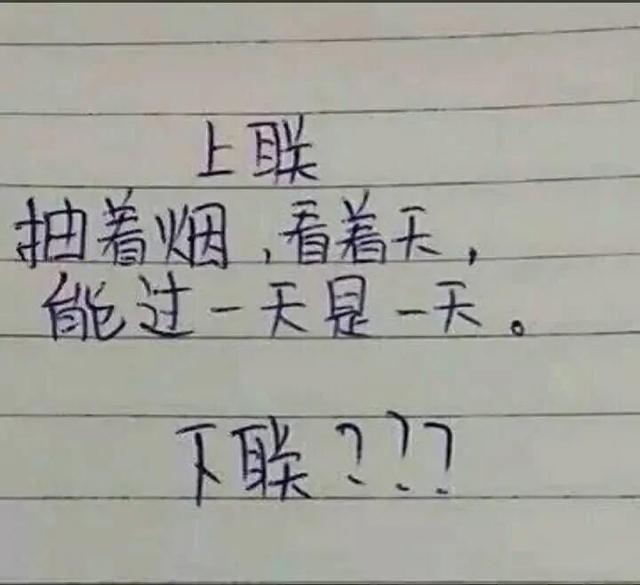 上联
抽着烟,看着天,
能过一天是一天。
下联???